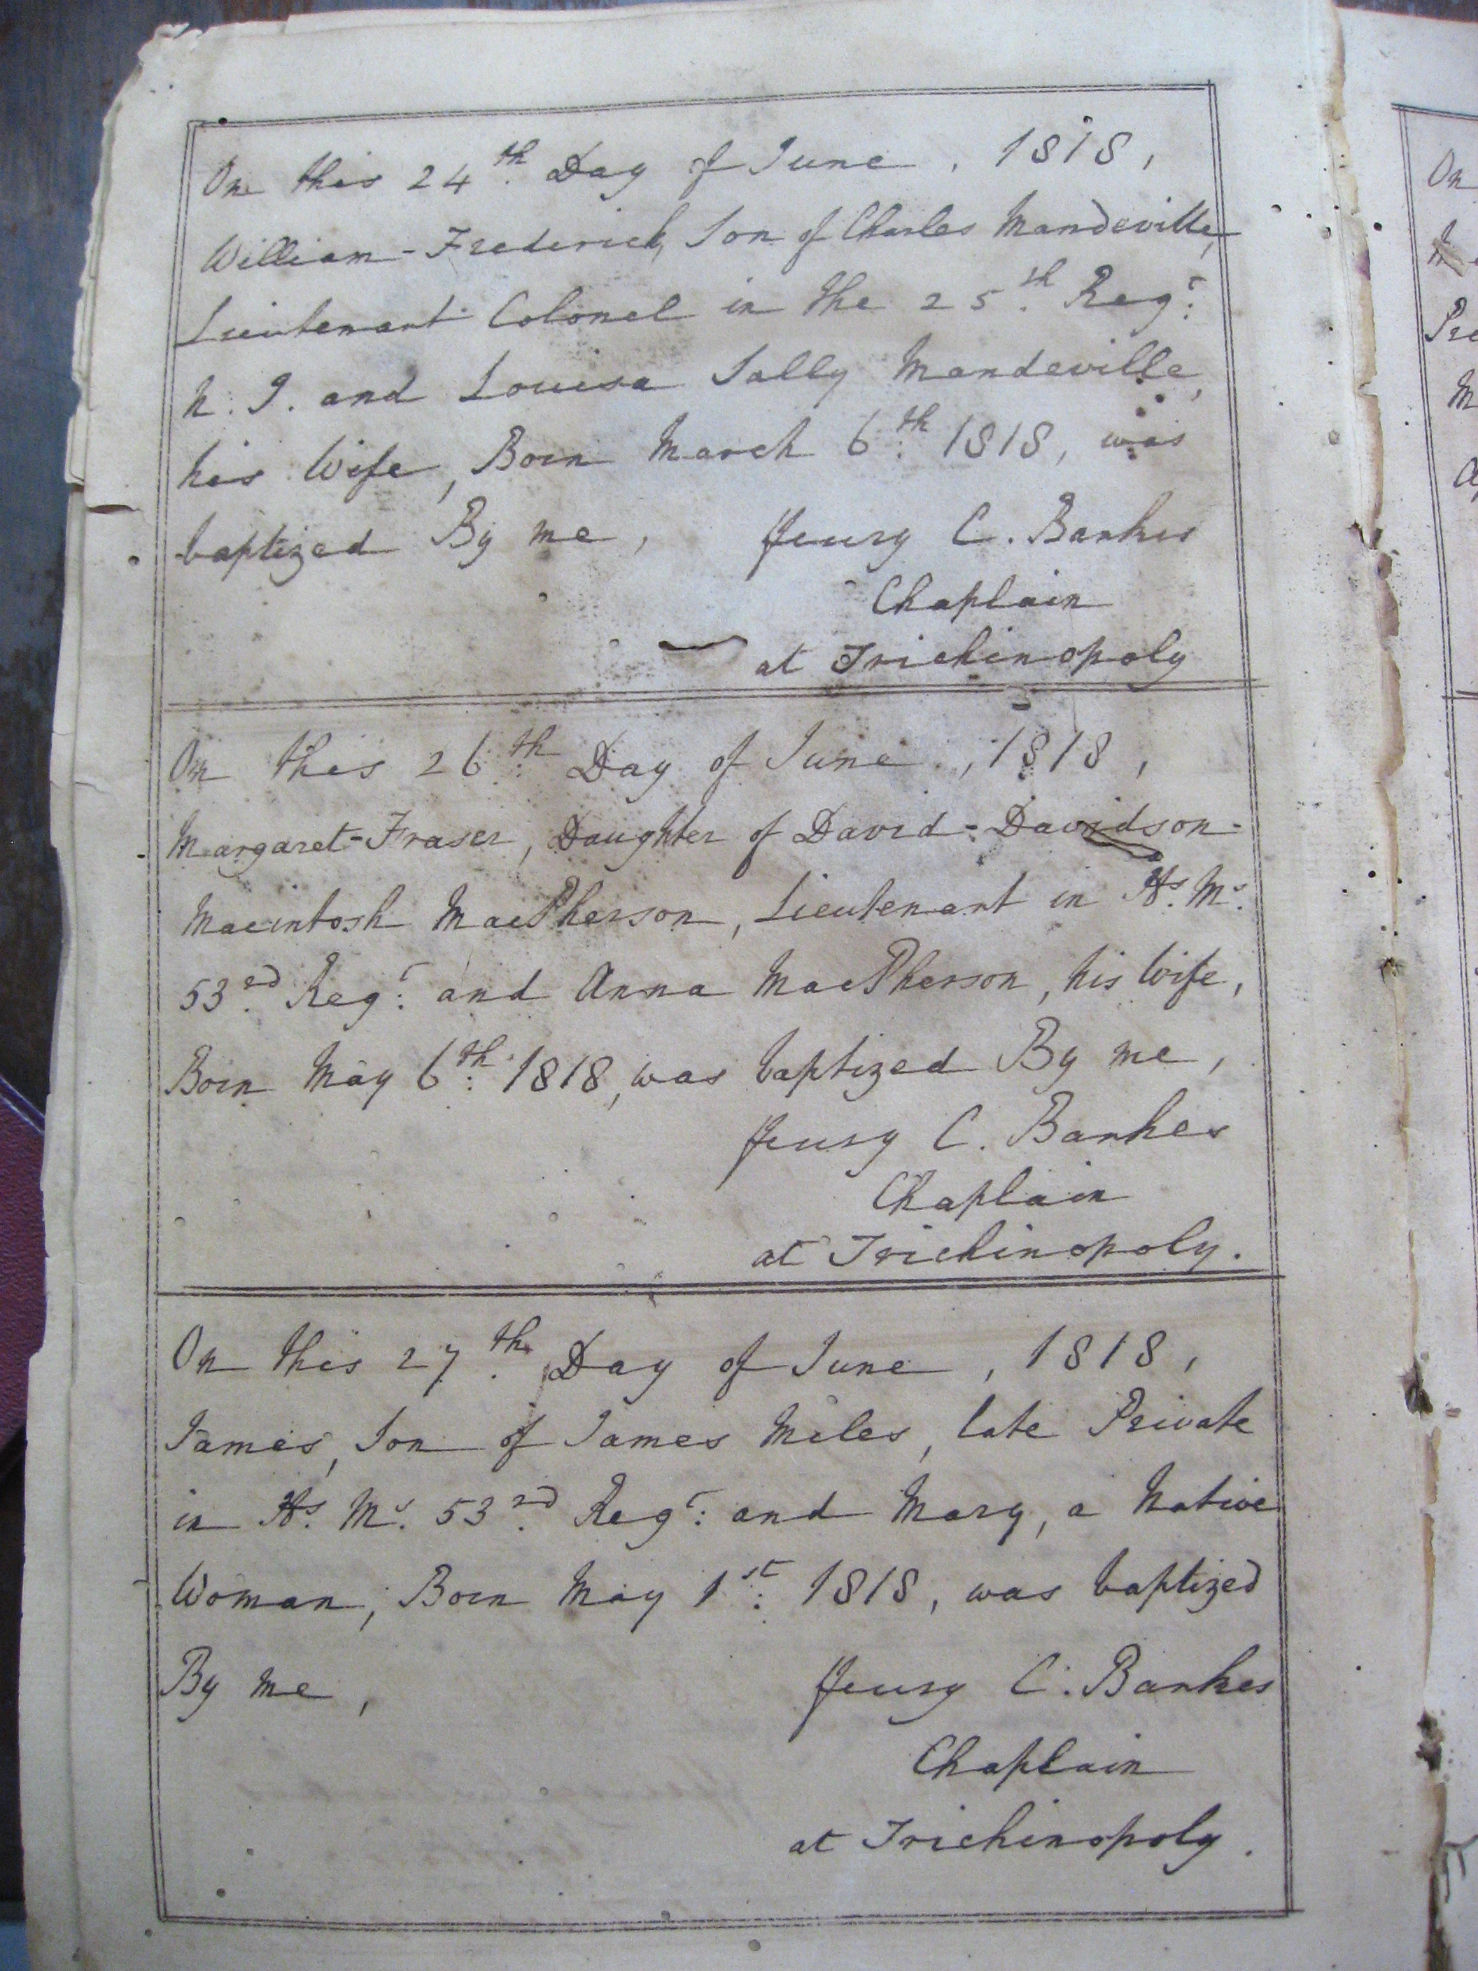 On this 24th. Day of June, 1818,
William-Frederick, Son of Charles Mandeville,
Lieutenant Colonel in the 25th. Regt:
N. I. and Louisa Sally Mandeville,
his Wife, Born March 6th: 1818, was
baptized By me, Henry C. Bankes
Chaplain
at Trichinopoly
On this 26th: Day of June, 1818,
Margaret-Fraser, Daughter of David-Davidson-
Macintosh MacPherson, Lieutenant in Hs. Ms.
53rd. Regt: and Anna MacPherson, his Wife,
Born May 6th: 1818, was baptized By me,
Henry C. Bankes
Chaplain
at Trichinopoly.
On this 27th. Day of June, 1818,
James, Son of James Miles, late Private
in Hs. Ms. 53rd. Regt: and Mary, a Native
Woman, Born May 1st: 1818, was baptized
By me, Henry C. Bankes
Chaplain
at Trichinopoly.
On